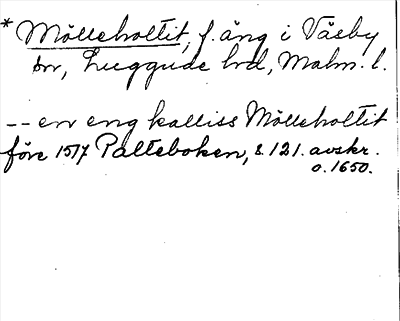 * Mölleholtit, f. äng i Väsby
sn, Luggude hd, Malm. l.
-- en eng kalliss Mölleholtit
före 1517 Palteboken, s. 121. avskr.
o. 1650.